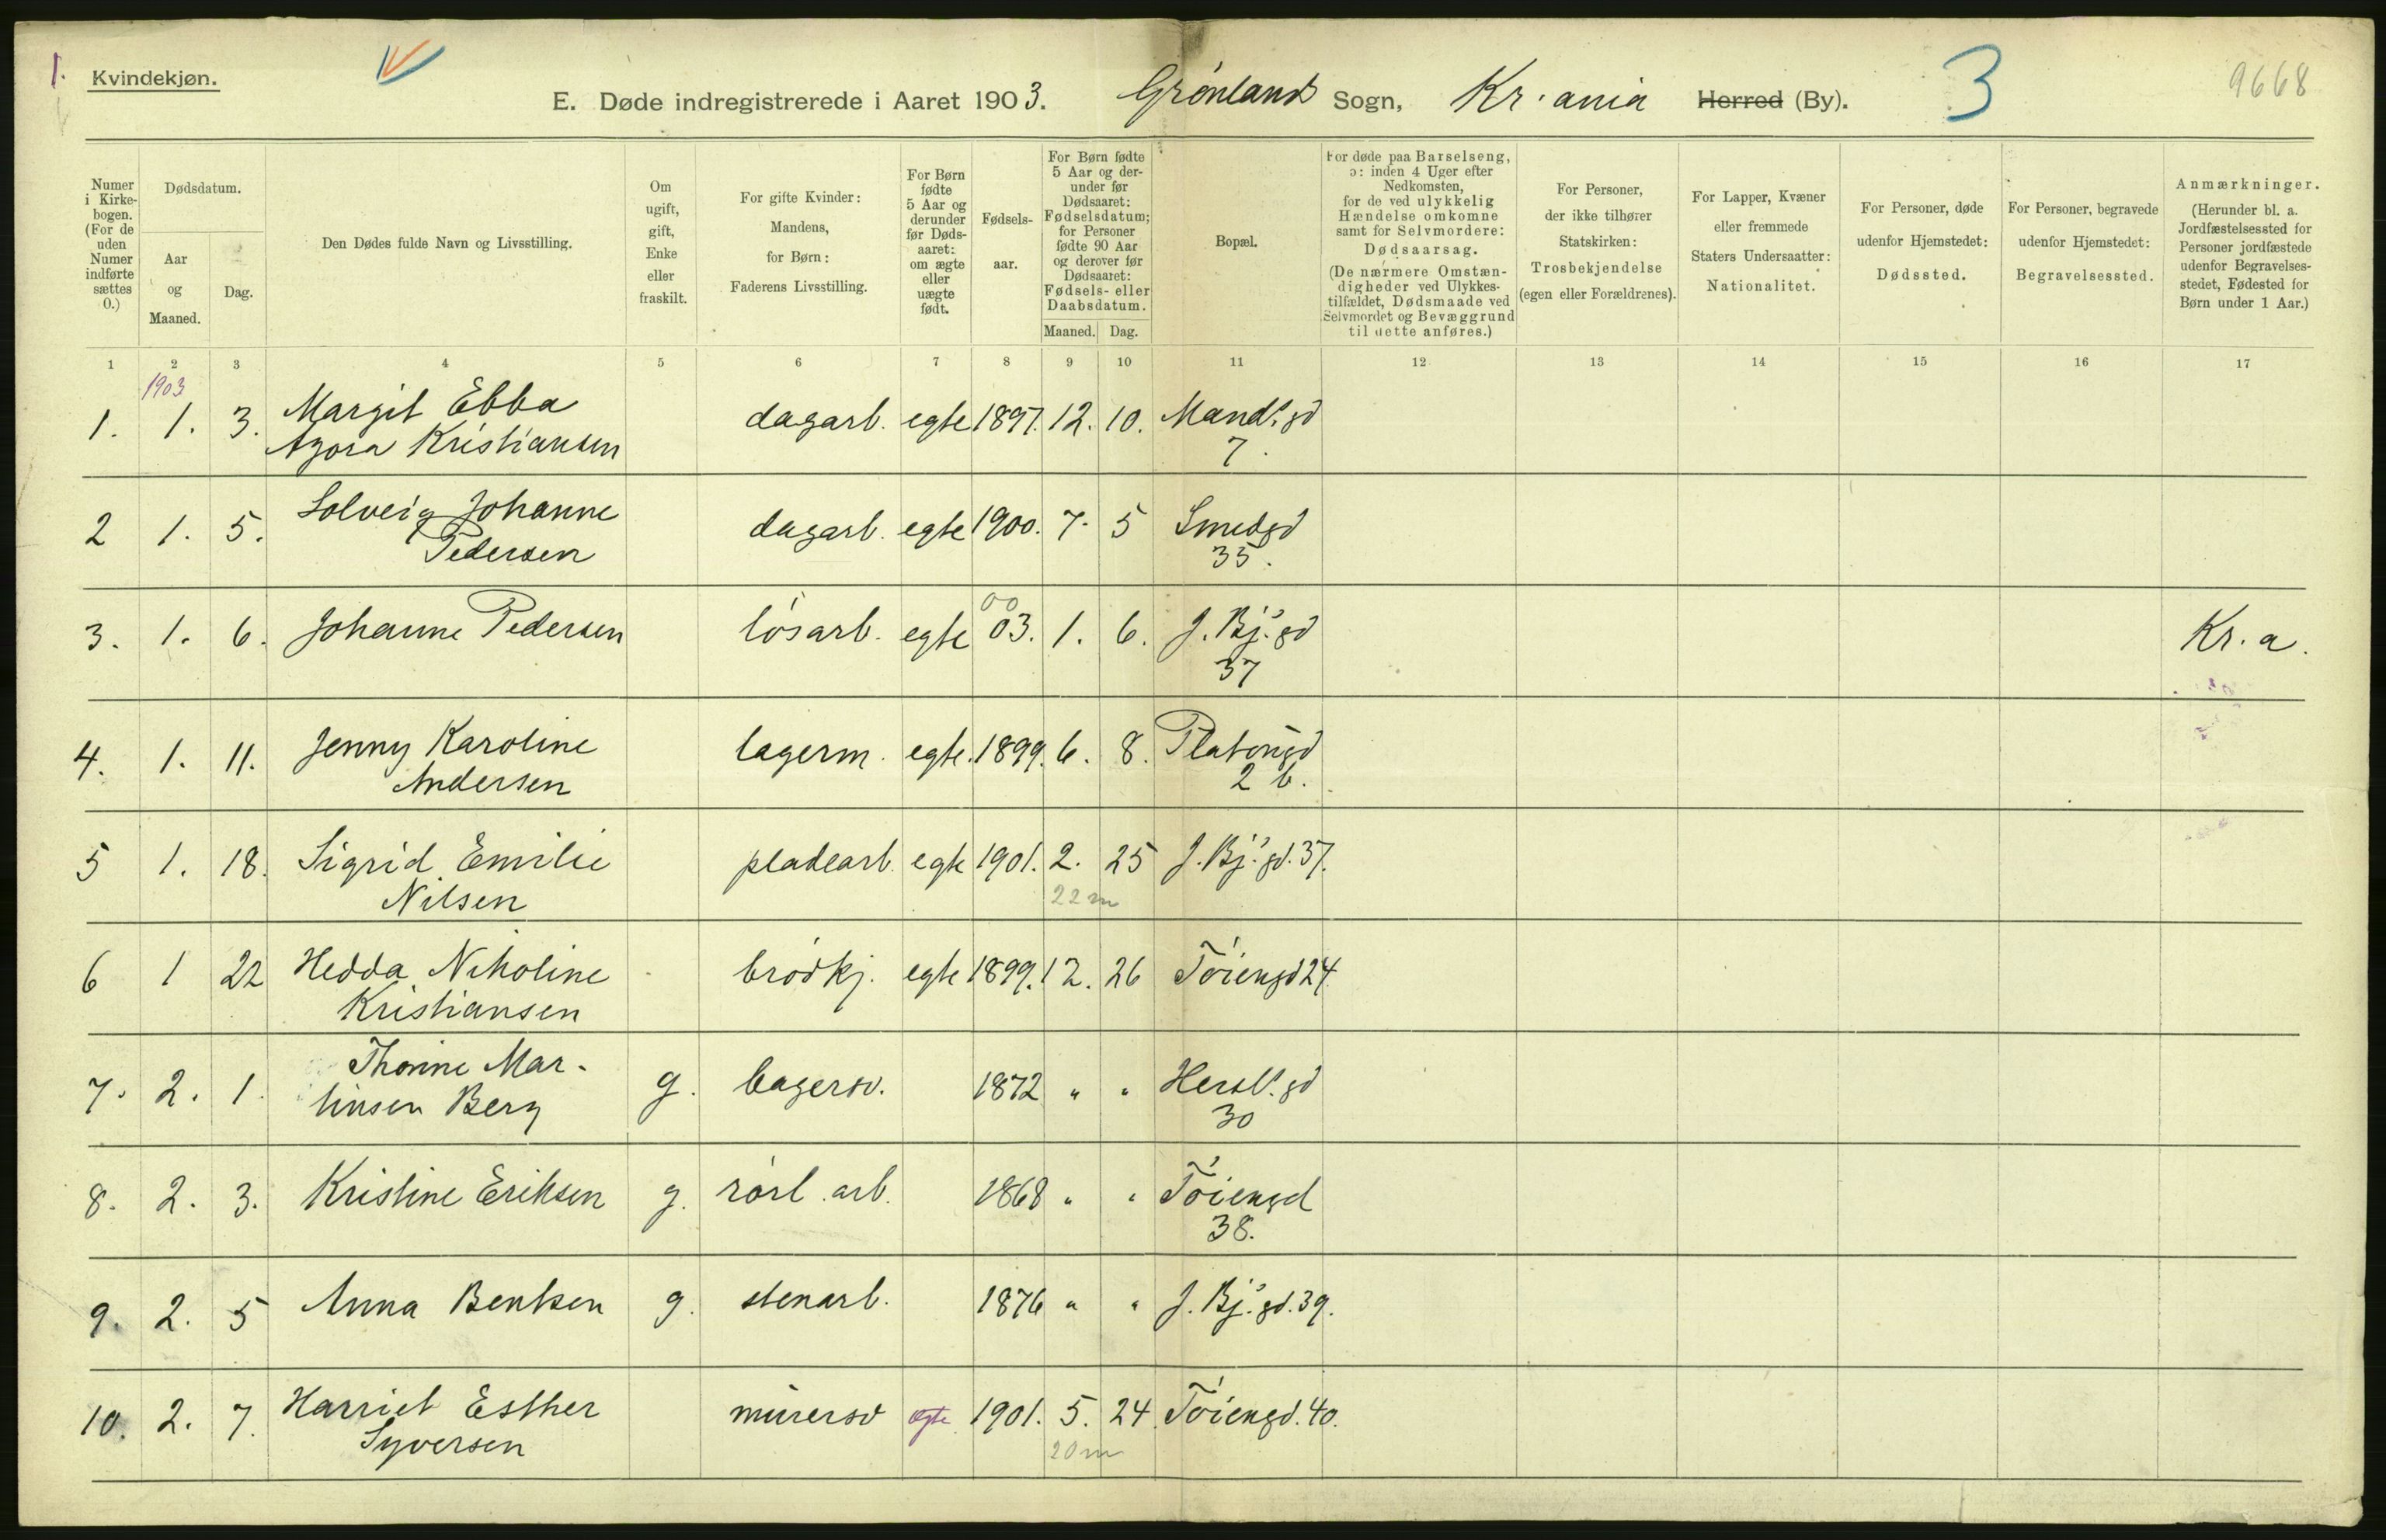 1. Kvindekjøn.
E. Døde indregistrerede i Aaret 1903. Grønlands Sogn, Kr.ania Herred (By). 3 9668
Numer i Kirkebogen. (For de uden Numer indførte sættes 0.)
Dødsdatum.
Aar og Maaned.
Dag.
Den Dødes fulde Navn og Livsstilling.
Om ugift, gift, Enke eller fraskilt.
For gifte Kvinder: Mandens, for Børn: Faderens Livsstilling.
For Børn fødte 5 Aar og derunder før Dødsaaret: om ægte eller uægte født.
Fødselsaar.
For Børn fødte 5 Aar og derunder før Dødsaaret: Fødselsdatum; for Personer fødte 90 Aar og derover før Dødsaaret: Fødsels- eller Daabsdatum.
Maaned. Dag.
Bopæl.
For døde paa Barselseng, ɔ: inden 4 Uger efter Nedkomsten, for de ved ulykkelig Hændelse omkomne samt for Selvmordere: Dødsaarsag. (De nærmere Omstændigheder ved Ulykkestilfældet, Dødsmaade ved Selvmordet og Bevæggrund til dette anføres.)
For Personer, der ikke tilhører Statskirken: Trosbekjendelse (egen eller Forældrenes).
For Lapper, Kvæner eller fremmede Staters Undersaatter: Nationalitet.
For Personer, døde udenfor Hjemstedet: Dødssted.
For Personer, begravede udenfor Hjemstedet: Begravelsessted.
Anmærkninger. (Herunder bl. a. Jordfæstelsessted for Personer jordfæstede udenfor Begravelsesstedet, Fødested for Børn under 1 Aar.)
1 2 3 4 5 6 7 8 9 10 11 12 13 14 15 16 17
1903
1. 1. 3. Margit Ebba dagarb. egte 1897. 12. 10. Mandsgd
Agora Kristiansen 7.
2 1. 5. Solveig Johanne dagarb. egte 1900. 7. 5 Smedgd
Pedersen 35.
00
3. 1. 6. Johanne Pedersen løsarb. egte 03. 1. 6. J. Bj.s gd Kr.a.
37
4. 1. 11. Jenny Karoline lagerm. egte. 1899. 6. 8. Platousgd
Andersen 2 b.
5 1. 18. Sigrid Emilie pladearb. egte 1901. 2. 25 J. Bj.s gd. 37.
Nilsen 22 m
6 1 22 Hedda Nikoline brødkj. egte 1899. 12. 26 Tøiengd 24.
Kristiansen
7. 2. 1. Thorine Mar- g. bagersv. 1872 " " Hersl.s gd
tinsen Berg 30
8. 2. 3. Kristine Eriksen g. rørl. arb. 1868 " " Tøiengd
38.
9. 2. 5 Anna Bentsen g. stenarb. 1876 " " J. Bj.s gd. 39.
10. 2. 7. Harriet Esther murersv egte 1901. 5. 24. Tøiengd. 40.
Syversen 20 m